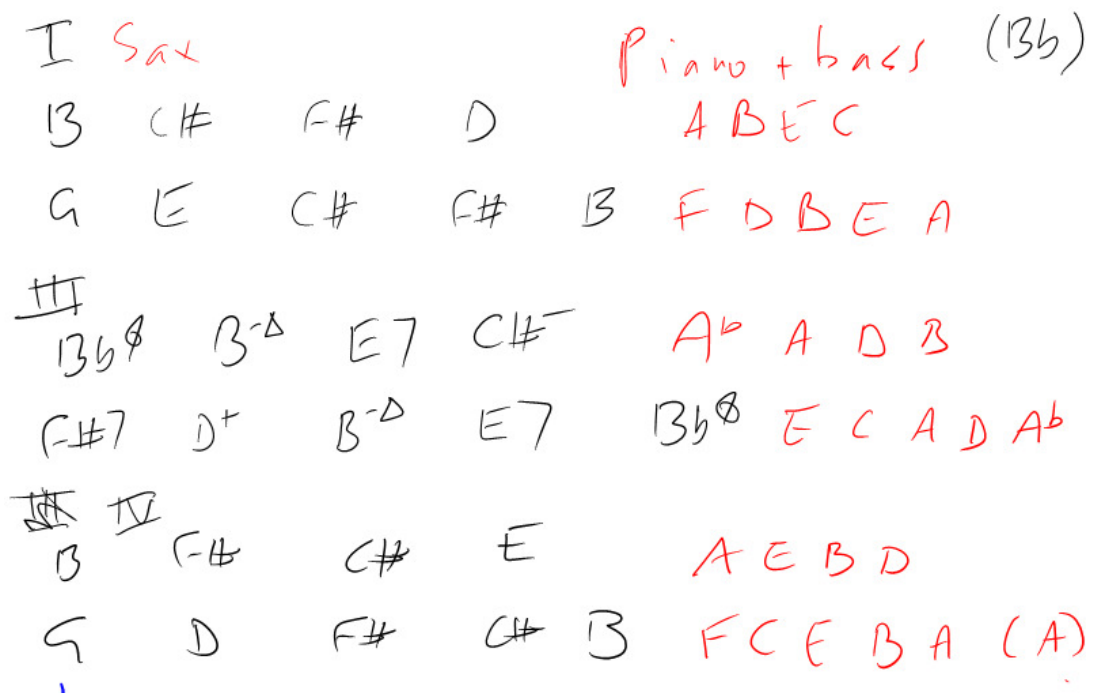 I Sax Piano + bass (Bb)
B C# F# D A B E C
G E C# F# B F D B E A
III
Bbø B-Δ E7 C#- Ab A D B
F#7 D+ B-Δ E7 Bbø E C A D Ab
IV
B F# C# E A E B D
G D F# C# B F C E B A (A)